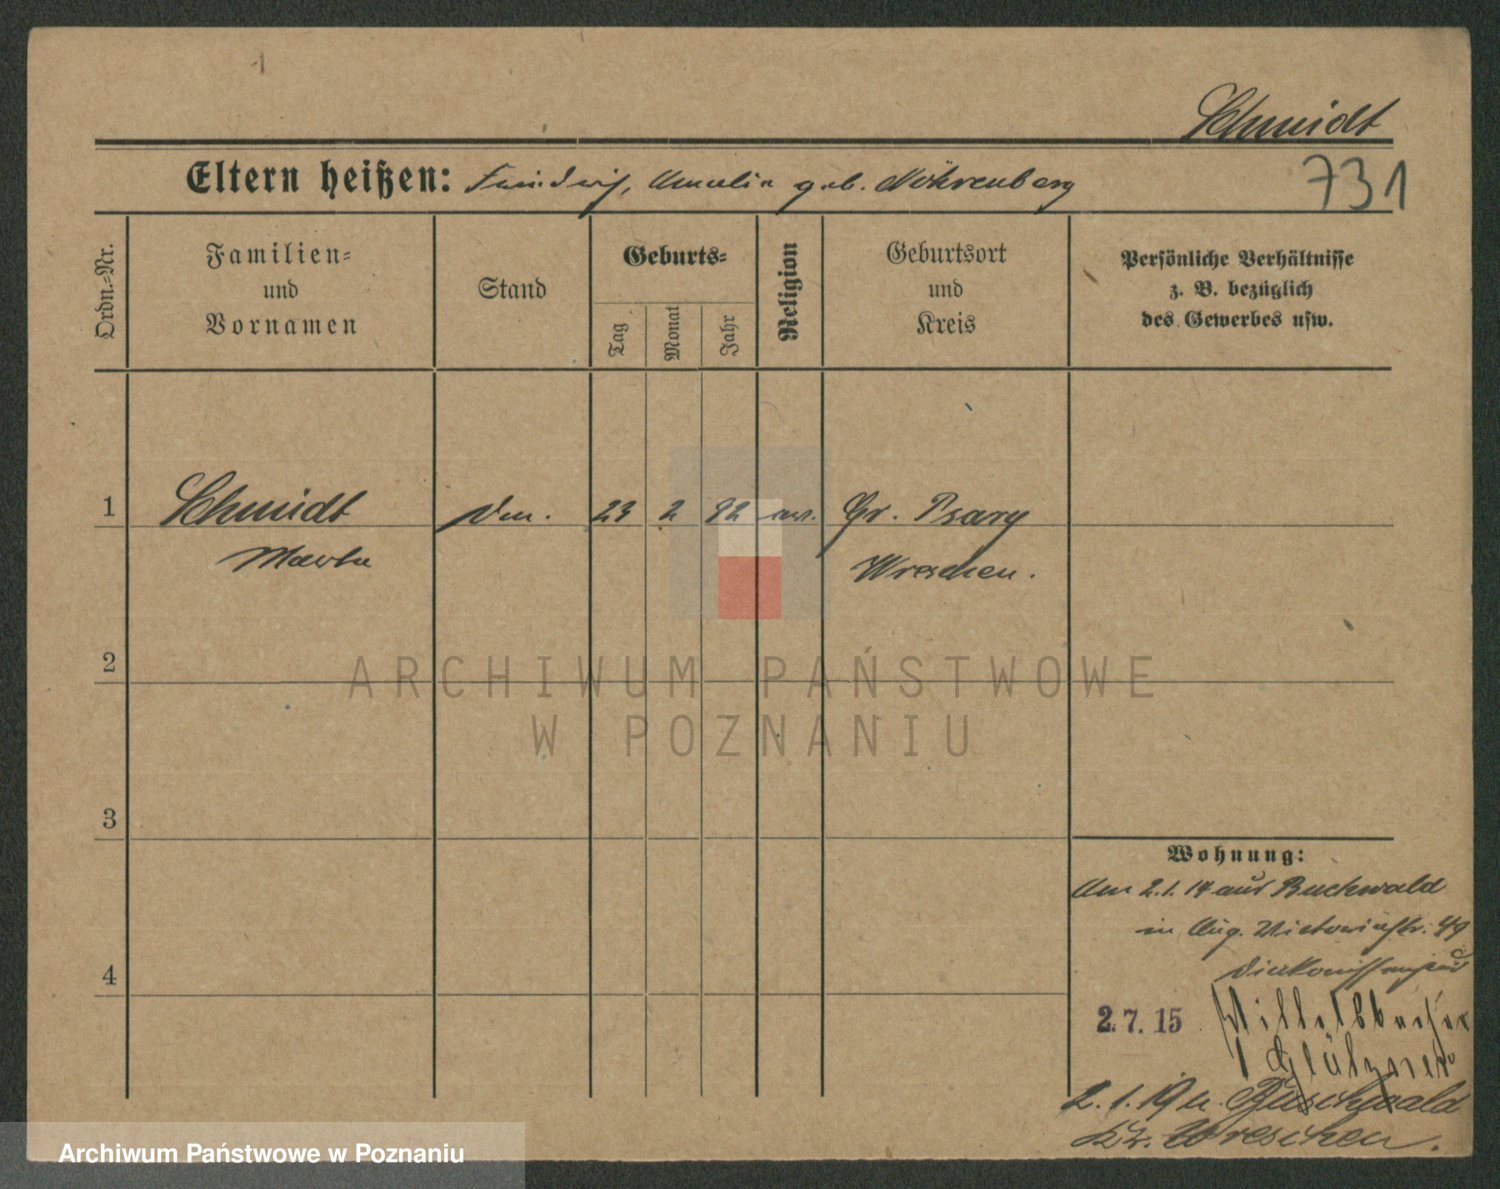 Schmidt
731
Eltern heißen: Amalia geb. Nöhrenberg
Ordn.=Nr.
Familien=
und
Vornamen
Stand
Geburts=
Tag
Monat
Jahr
Religion
Geburtsort
und
Kreis
Persönliche Verhältnisse
z. B. bezüglich
des Gewerbes usw.
1 Schmidt 23 2 92 Gr. Psary
Martha Wreschen.
2
3
4
Wohnung:
Am 2.1.14 aus Buchwald
in Aug. Victoriastr. 49
2.7.15
2.1.19 n. Buschwald
Kr. Wreschen.
ARCHIWUM PAŃSTWOWE
W POZNANIU
Archiwum Państwowe w Poznaniu